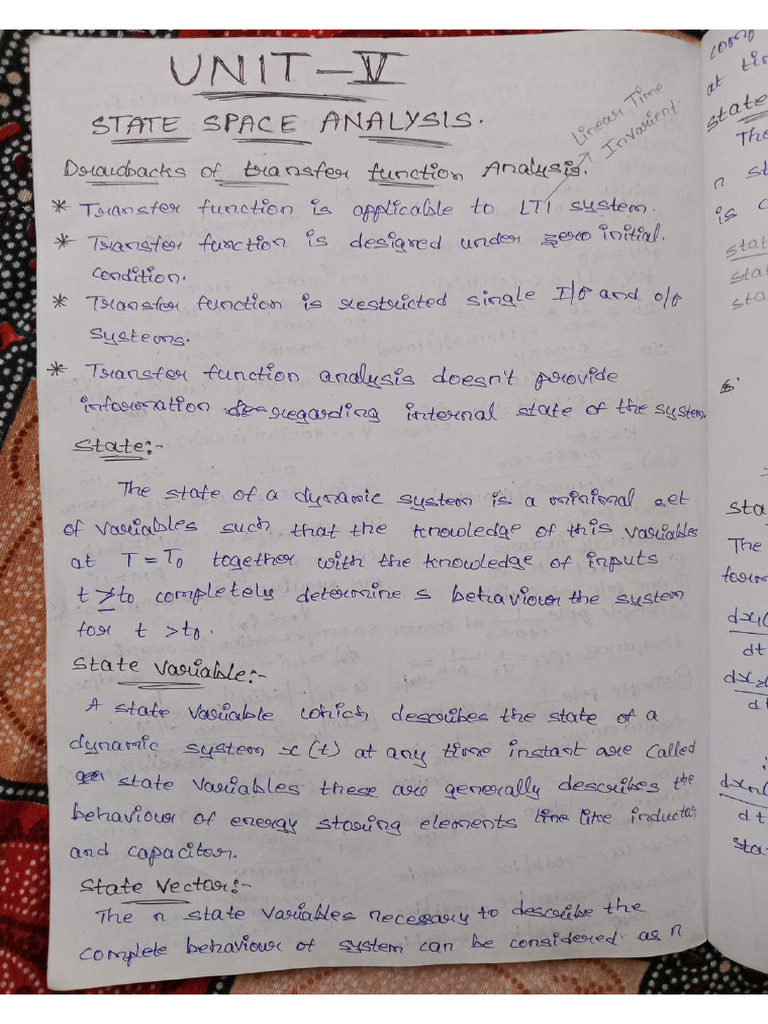 UNIT-V
STATE SPACE ANALYSIS.
Linear Time
Invarient.
Drawbacks of transfer function Analysis.
* Transfer function is applicable to LTI system.
* Transfer function is designed under zero initial.
condition.
* Transfer function is restricted single I/P and O/P
systems.
* Transfer function analysis doesn't provide
information regarding internal state of the system.
State:-
The state of a dynamic system is a minimal set
of variables such that the knowledge of this variables
at T = T₀ together with the knowledge of inputs
t ≥ t₀ completely determine s behaviour the system
for t > t₀.
State Variable:-
A state variable which describes the state of a
dynamic system x(t) at any time instant are called
state variables these are generally describes the
behaviour of energy storing elements like inductor
and capacitor.
State Vector:-
The n state variables necessary to describe the
complete behaviour of system can be considered as n
com
at tim
state
The
n st
is c
stat
stat
sta
sta
The
form
dx₁(
dt
dx₂
d
dxₙ(
dt
sta